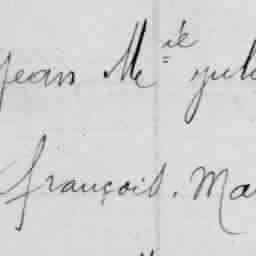 Jean Mie Jul
François. Ma